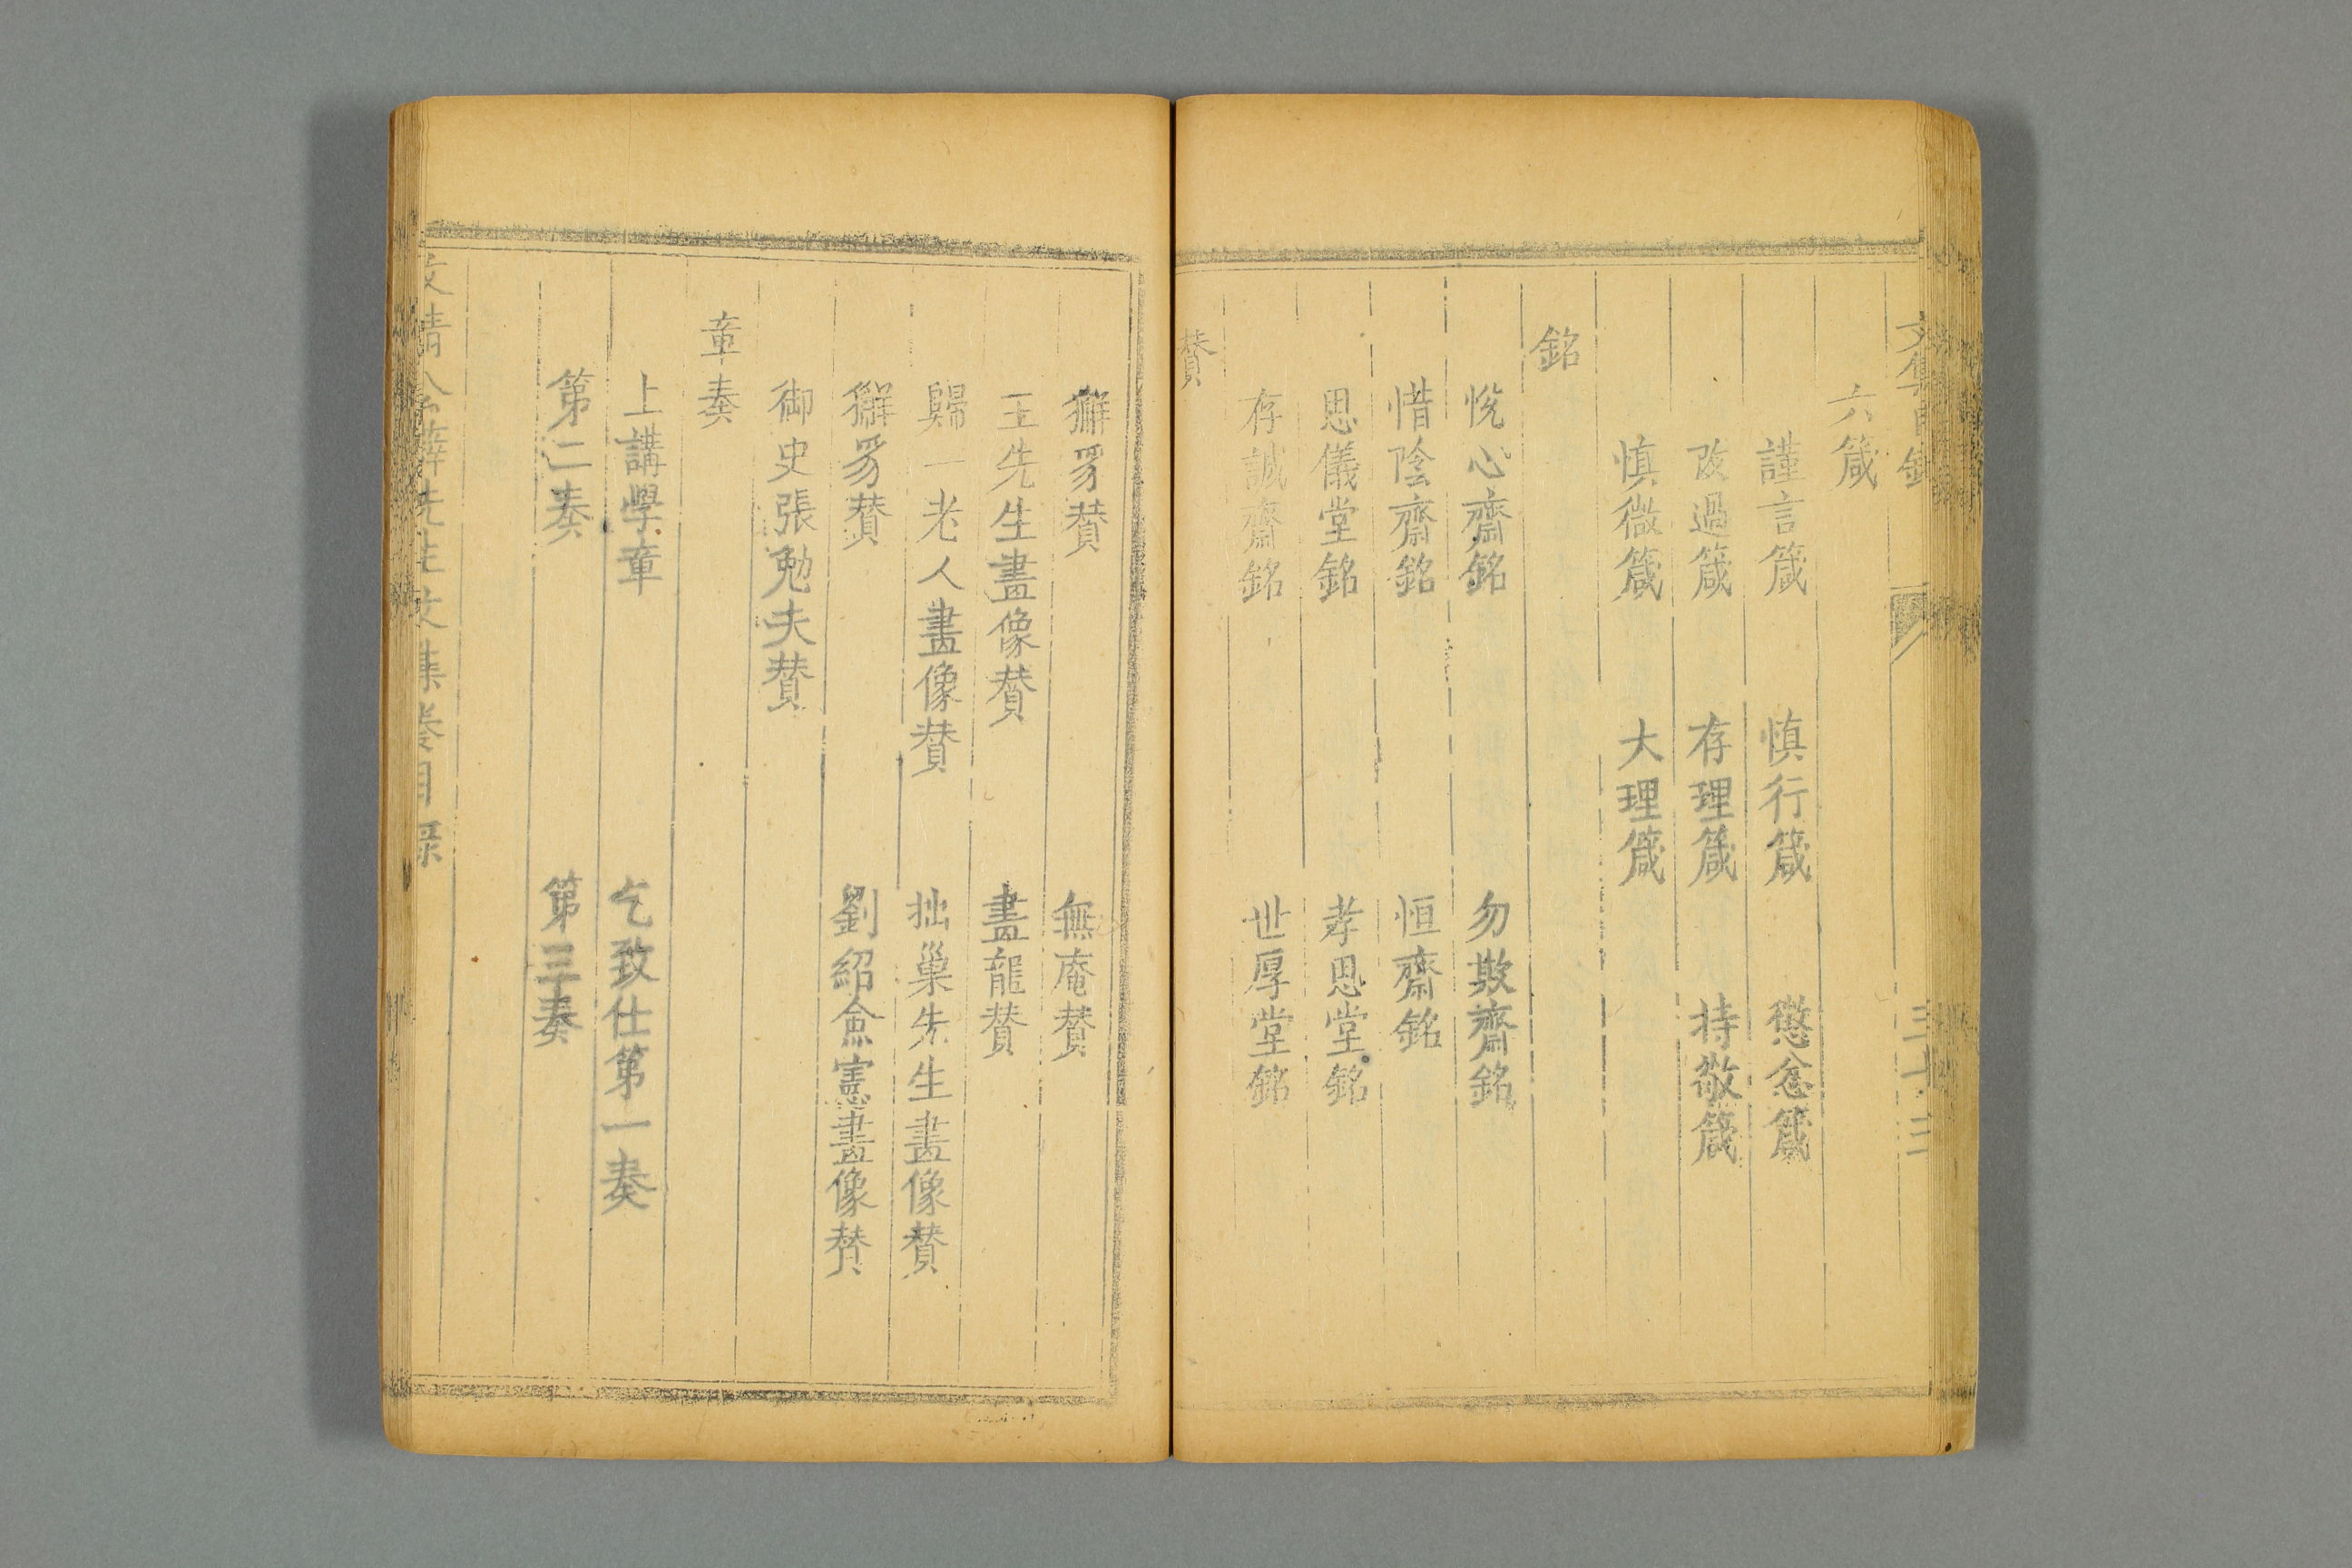 六箴
謹言箴 慎行箴 懲忿箴
改過箴 存理箴 持敬箴
慎微箴 大理箴
銘
悅心齋銘 勿欺齋銘
惜陰齋銘 恒齋銘
思儀堂銘 孝思堂銘
存誠齋銘 世厚堂銘
賛
獬豸賛 無庵賛
王先生畫像賛 畫龍賛
歸一老人畫像賛 拙巢先生畫像賛
獬豸賛 劉紹僉憲畫像賛
御史張勉夫賛
章奏
上講學章 乞致仕第一奏
第二奏 第三奏
文清公薛先生文集卷目錄